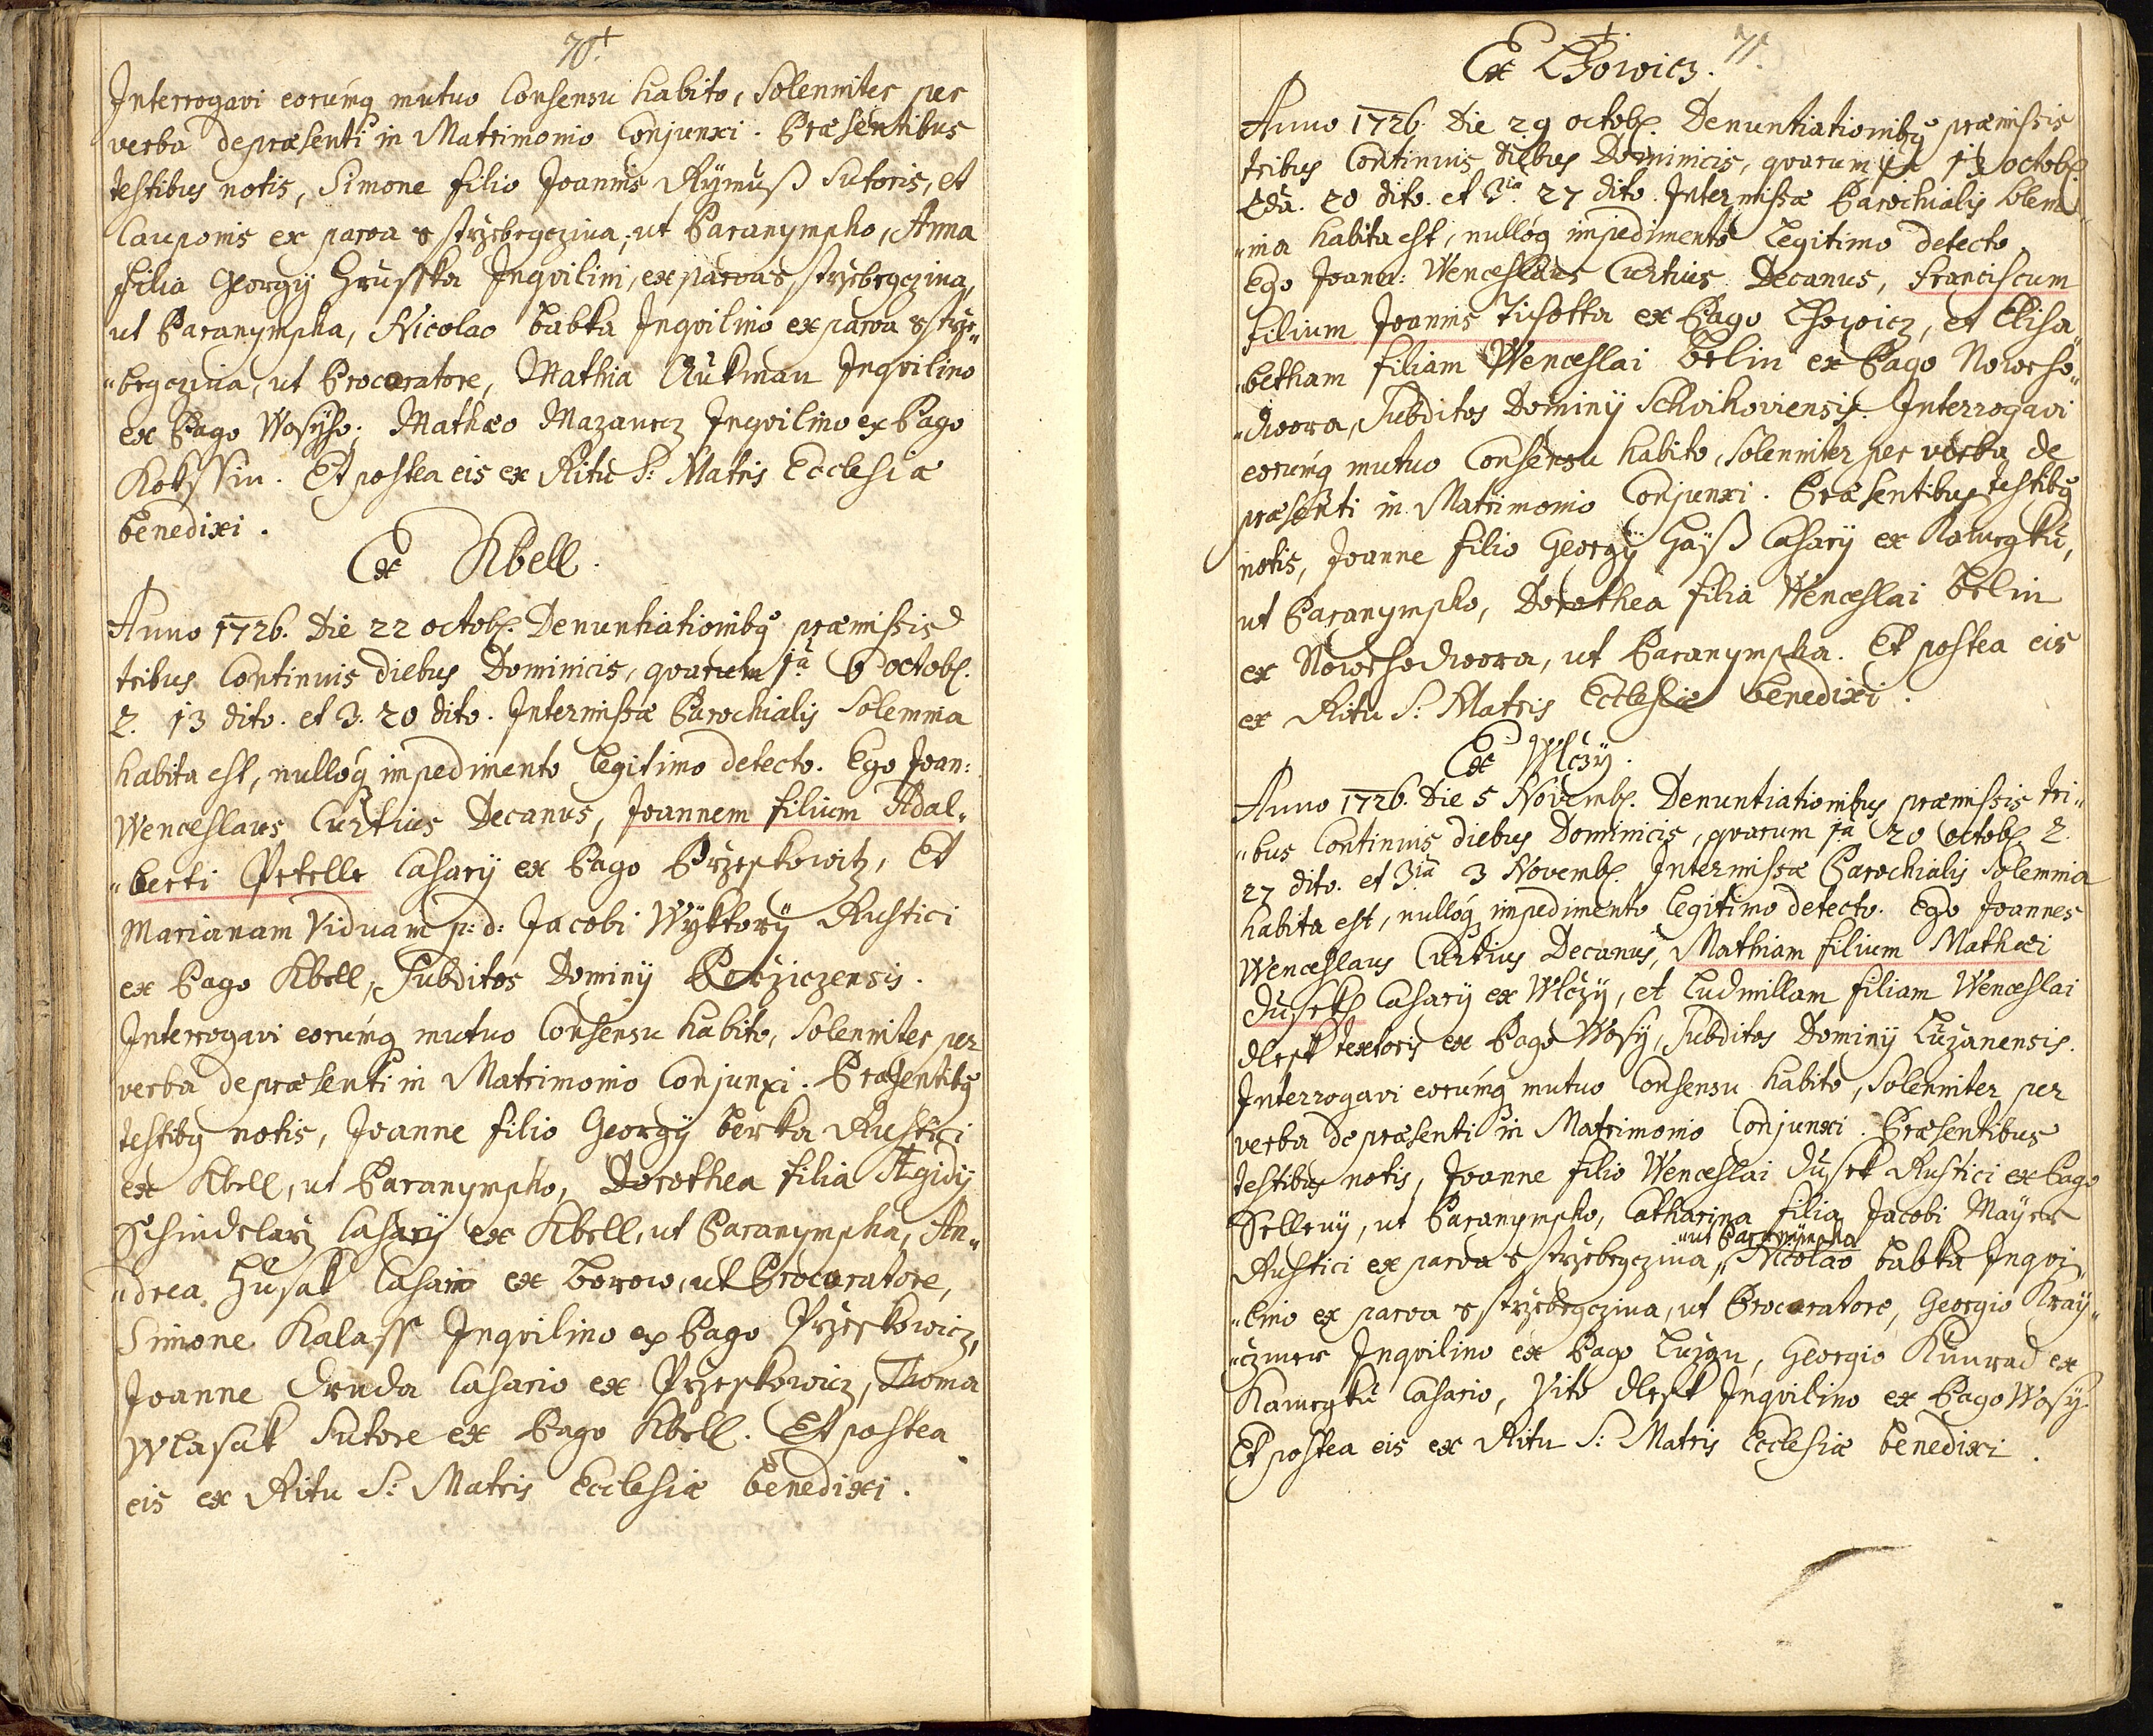 70.
Interrogavi eorumq mutuo Consensu habito, Solenniter per
verba de præsenti in Matrimonio Conjunxi. Præsentibus
testibus notis, Simone filio Joannis Rÿmuß Sutoris, et
Cauponis ex parva Strzebrgczina, ut Paranympho, Anna
filia Georgÿ Hrusska Inqvilini, ex parva Strzebrgczina,
ut Paranympha, Nicolao Babka Inqvilino ex parva Strze„
„brgczina, ut Procuratore, Mathia Aukman Inqvilino
ex Pago Wosÿho; Mathæo Mazancz Inqvilino ex Pago
Kokssin. Et postea eis ex Ritu S: Matris Ecclesiæ
benedixi.
Ex Kbell.
Anno 1726. Die 22 octob. Denuntiationibq præmissis
tribus Continuis diebus Dominicis, qvarum 1a 6 octob.
2. 13 dito. et 3. 20 dito. Intermissæ Parochialis Solemnia
habita est, nulloq impedimento legitimo detecto. Ego Joan:
Wenceslaus Curtius Decanus, Joannem filium Adal„
„berti Petelle Casarÿ ex Pago Przeskowitz, Et
Marianam Viduam p: d: Jacobi Wÿktorÿ Rustici
ex Pago Kbell, Subditos Dominÿ Porziczensis.
Interrogavi eorumq mutuo Consensu habito, Solenniter per
verba de præsenti in Matrimonio Conjunxi. Præsentibq
testibq notis, Joanne filio Georgÿ Berka Rustici
ex Kbell, ut Paranympho, Dorothea filia Ægidÿ
Schindelarz Casarÿ ex Kbell, ut Paranympha, An„
„drea Husak Casario ex Borow, ut Procuratore,
Simone Kalass Inqvilino ex Pago Przeskowicz,
Joanne Druda Casario ex Przeskowicz, Thoma
Wlasak Sutore ex Pago Kbell. Et postea
eis ex Ritu S: Matris Ecclesiæ benedixi.
71.
Ex Lhowicz.
Anno 1726. Die 29 octob. Denuntiationibq præmissis
tribus Continuis diebus Dominicis, qvarum 1a 13 octob.
2da. 20 dito. et 3ia 27 dito. Intermissæ Parochialis Solem„
„nia habita est, nulloq impedimento Legitimo detecto.
Ego Joann: Wenceslaus Curtius Decanus, Franciscum
filium Joannis Tisotka ex Pago Lhowicz, et Elisa„
„betham filiam Wenceslai Belin ex Pago Noweho„
„dwora, Subditos Dominÿ Schwihoviensis. Interrogavi
eorumq mutuo Consensu habito, Solenniter per verba de
præsenti in Matrimonio Conjunxi. Præsentibus testibq
notis, Joanne filio Georgÿ Haÿß Casarÿ ex Kamegku,
ut Paranympho, Dorothea filia Wenceslai Belin
ex Nowehodwora, ut Paranympha. Et postea eis
ex Ritu S: Matris Ecclesiæ benedixi.
Ex Wlczÿ.
Anno 1726. Die 5 Novemb. Denuntiationibus præmissis tri„
„bus Continuis diebus Dominicis, qvarum 1a 20 octob. 2.
27 dito. et 3ia 3 Novemb. Intermissæ Parochialis Solemnia
habita est, nulloq impedimento legitimo detecto. Ego Joannes
Wenceslaus Curtius Decanus, Mathiam filium Mathæi
Dussek Casarÿ ex Wlczÿ, et Ludmillam filiam Wenceslai
Dlesk textoris ex Pago Wosÿ, Subditos Dominÿ Luzanensis.
Interrogavi eorumq mutuo Consensu habito, Solenniter per
verba de præsenti in Matrimonio Conjunxi. Præsentibus
testibus notis, Joanne filio Wenceslai Dussek Rustici ex Pago
Sellcuÿ, ut Paranympho, Catharina filia Jacobi Maÿer
Rustici ex parva Strzebrgczina, „ut Paranympha Nicolao Babka Inqvi„
„lino ex parva Strzebrgczina, ut Procuratore, Georgio Kraÿ„
„czmer Inqvilino ex Pago Luzan, Georgio Kunrad ex
Kamegku Casario, Vito Dlesk Inqvilino ex Pago Wosÿ.
Et postea eis ex Ritu S: Matris Ecclesiæ benedixi.